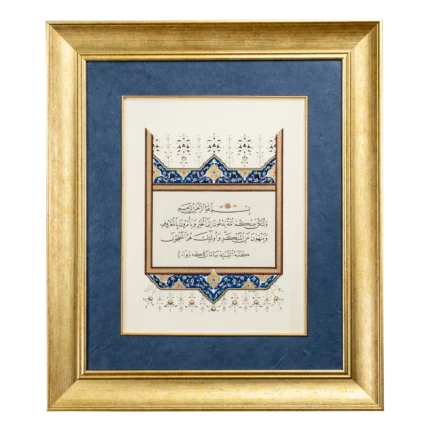 بسم الله الرحمن الرحيم
ولتكن منكم أمة يدعون إلى الخير ويأمرون بالمعروف
وينهون عن المنكر وأولئك هم المفلحون